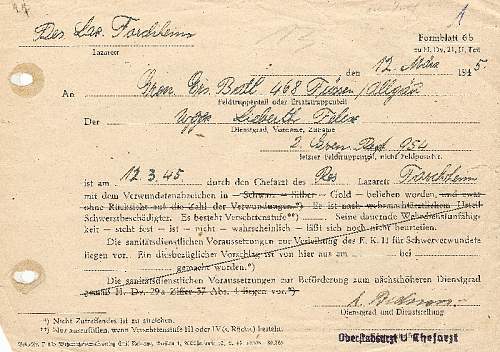 Res. Laz. Forchheim
Lazarett
Formblatt 6b
zu H. Dv. 21, II. Teil
den 12. März 1945
An Gren. Ers. Batl. 468 Füssen/Allgäu
Feldtruppenteil oder Ersatztruppenteil
Der Felix
Dienstgrad, Vorname, Zuname
2. Gren. Regt. 954
letzter Feldtruppenteil, nicht Feldpostnr.
ist am 12.3.45 durch den Chefarzt des Res. Lazarett Forchheim
mit dem Verwundetenabzeichen in — Schwarz — Silber — Gold — beliehen worden, und zwar
ohne Rücksicht auf die Zahl der Verwundungen.*) Es ist nach wehrmachtärztlichem Urteil
Schwerstbeschädigter. Es besteht Versehrtenstufe **) . Seine dauernde Wehrdienstunfähig-
keit — steht fest — ist — nicht — wahrscheinlich — läßt sich noch nicht beurteilen.
Die sanitätsdienstlichen Voraussetzungen zur Verleihung des E. K. II für Schwerverwundete
liegen vor. Ein diesbezüglicher Vorschlag ist von hier aus am bei
gemacht worden.*)
Die sanitätsdienstlichen Voraussetzungen zur Beförderung zum nächsthöheren Dienstgrad
gemäß H. Dv. 29a Ziffer 37 Abs. 4 liegen vor.*)
Dienstgrad und Dienststellung
*) Nicht Zutreffendes ist zu streichen.
**) Nur auszufüllen, wenn Versehrtenstufe III oder IV (s. Rücks.) besteht.
Oberstabsarzt u Chefarzt